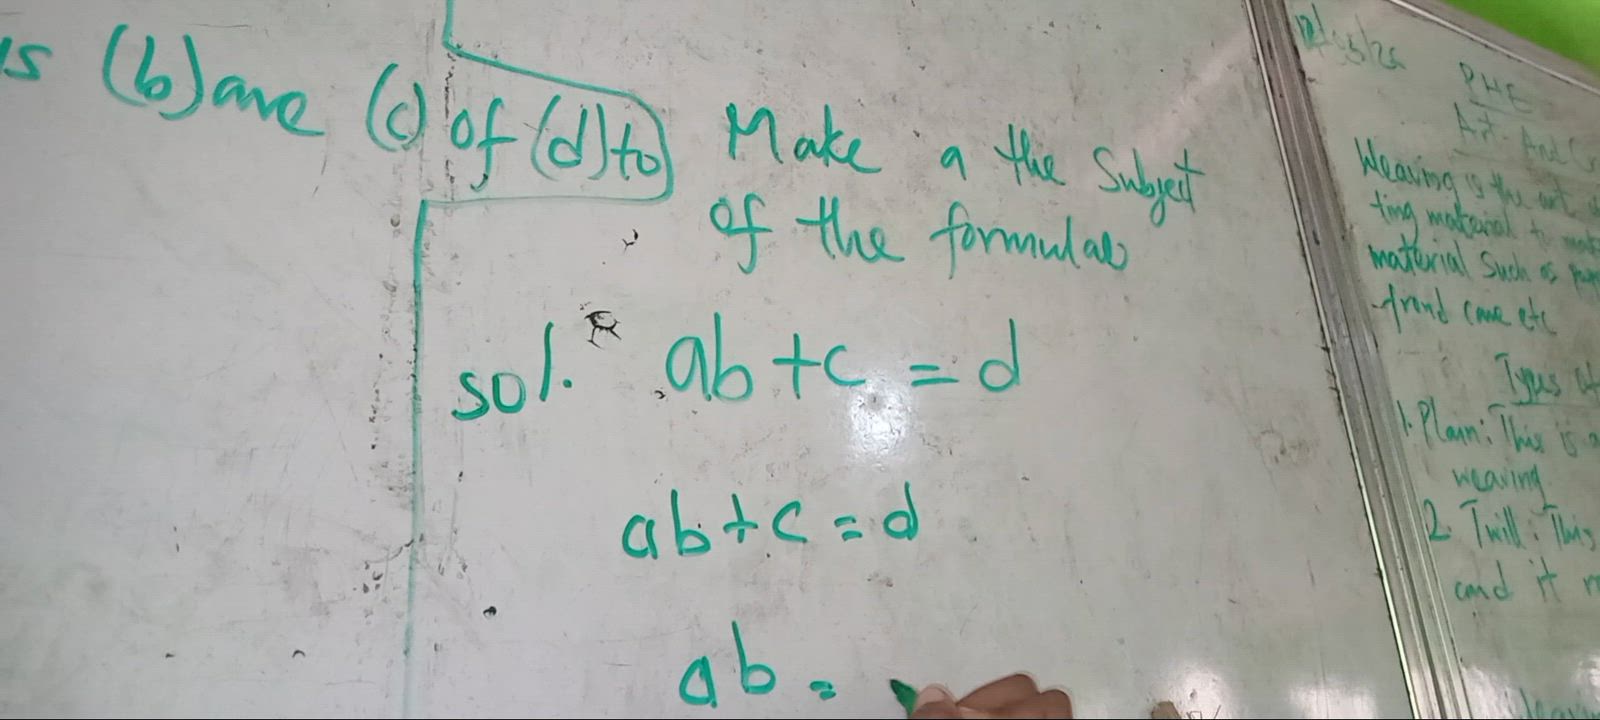 is (b) are (c) of (d) to
Make a the Subject
of the formulas
sol. ab + c = d
ab + c = d
ab =
PHE
Art And
Weaving is the art
ting material to
material Such as
frond cane etc
Types of
1. Plain: This is a
weaving
2. Twill: This
and it